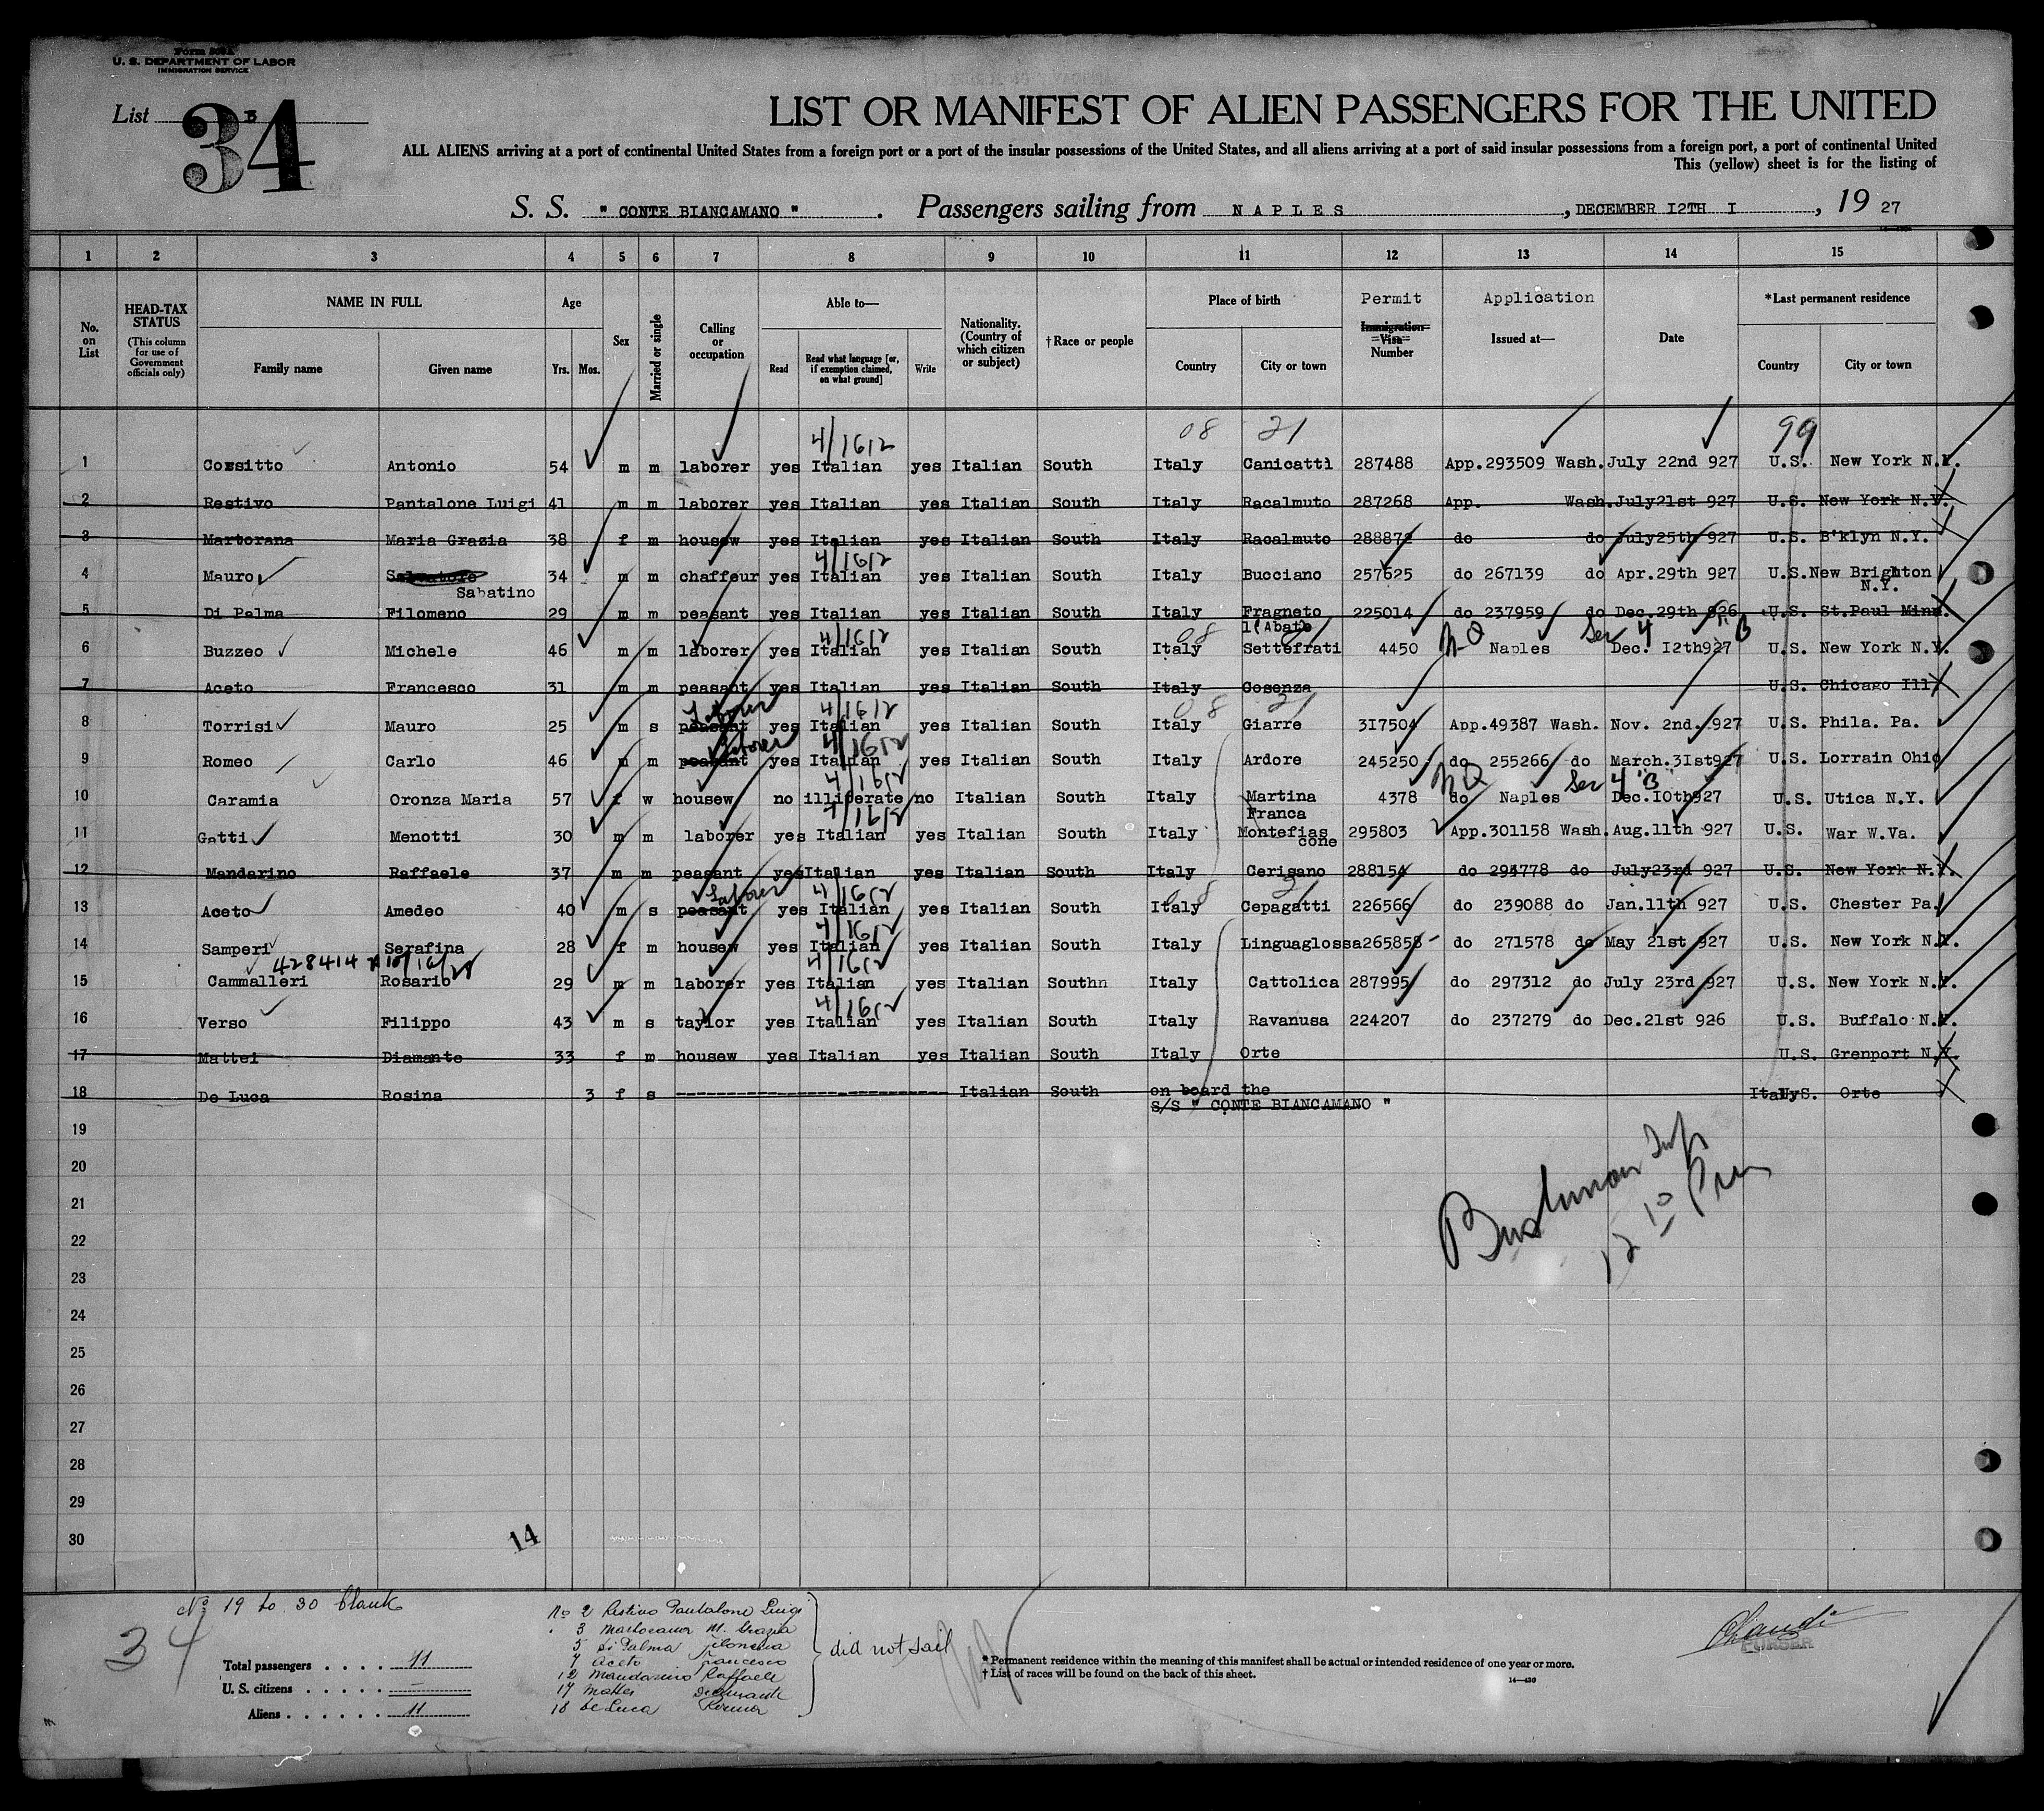 Form 500A
U. S. DEPARTMENT OF LABOR
IMMIGRATION SERVICE
List 34
LIST OR MANIFEST OF ALIEN PASSENGERS FOR THE UNITED
ALL ALIENS arriving at a port of continental United States from a foreign port or a port of the insular possessions of the United States, and all aliens arriving at a port of said insular possessions from a foreign port, a port of continental United
This (yellow) sheet is for the listing of
S. S. " CONTE BIANCAMANO " . Passengers sailing from N A P L E S , DECEMBER I2TH I , 19 27
1 2 3 4 5 6 7 8 9 10 11 12 13 14 15
No. on List HEAD-TAX STATUS (This column for use of Government officials only) NAME IN FULL Family name Given name Age Yrs. Mos. Sex Married or single Calling or occupation Able to— Read Read what language [or, if exemption claimed, on what ground] Write Nationality. (Country of which citizen or subject) †Race or people Place of birth Country City or town Permit Immigration Visa Number Application Issued at— Date *Last permanent residence Country City or town
08 21 99
4/1612
1 Corsitto Antonio 54 m m laborer yes Italian yes Italian South Italy Canicattì 287488 App.293509 Wash. July 22nd 927 U.S. New York N.Y.
2 Restivo Pantalone Luigi 41 m m laborer yes Italian yes Italian South Italy Racalmuto 287268 App. Wash. July21st 927 U.S. New York N.Y.
3 Martorana Maria Grazia 38 f m housew yes Italian yes Italian South Italy Racalmuto 288872 do do July25th 927 U.S. B'klyn N.Y.
4/1612
4 Mauro Salvatore 34 m m chaffeur yes Italian yes Italian South Italy Bucciano 257625 do 267139 do Apr.29th 927 U.S. New Brighton
Sabatino N.Y.
5 Di Palma Filomeno 29 m m peasant yes Italian yes Italian South Italy Fragneto 225014 do 237959 do Dec.29th 926 U.S. St.Paul Minn.
l'Abate
08 21 4/1612 Sec 4 "B"
6 Buzzeo Michele 46 m m laborer yes Italian yes Italian South Italy Settefrati 4450 N-Q Naples Dec. I2th927 U.S. New York N.Y.
7 Aceto Francesco 31 m m peasant yes Italian yes Italian South Italy Cosenza U.S. Chicago Ill
Laborer 4/1612 08 21
8 Torrisi Mauro 25 m s peasant yes Italian yes Italian South Italy Giarre 3I7504 App.49387 Wash. Nov. 2nd. 927 U.S. Phila. Pa.
Laborer 4/1612
9 Romeo Carlo 46 m m peasant yes Italian yes Italian South Italy Ardore 245250 do 255266 do March.3Ist927 U.S. Lorrain Ohio
4/1612 N Q Sec 4 "B"
10 Caramia Oronza Maria 57 f w housew no illiterate no Italian South Italy Martina 4378 do Naples Dec.I0th927 U.S. Utica N.Y.
Franca
4/1612
11 Gatti Menotti 30 m m laborer yes Italian yes Italian South Italy Montefias 295803 App.301158 Wash. Aug.11th 927 U.S. War W.Va.
cone
12 Mandarino Raffaele 37 m m peasant yes Italian yes Italian South Italy Cerisano 288154 do 294778 do July23rd 927 U.S. New York N.Y.
Laborer 4/1612 08 21
13 Aceto Amedeo 40 m s peasant yes Italian yes Italian South Italy Cepagatti 226566 do 239088 do Jan.11th 927 U.S. Chester Pa.
4/1612
14 Samperi Serafina 28 f m housew yes Italian yes Italian South Italy Linguaglossa 265858 do 271578 do May 21st 927 U.S. New York N.Y.
428414 10/16/28 4/1612
15 Cammalleri Rosario 29 m m laborer yes Italian yes Italian Southn Italy Cattolica 287995 do 297312 do July 23rd 927 U.S. New York N.Y.
4/1612
16 Verso Filippo 43 m s taylor yes Italian yes Italian South Italy Ravanusa 224207 do 237279 do Dec.21st 926 U.S. Buffalo N.Y.
17 Mattei Diamante 33 f m housew yes Italian yes Italian South Italy Orte U.S. Grenport N.Y.
18 De Luca Rosina 3 f s Italian South on board the Italy U.S. Orte
S/S " CONTE BIANCAMANO "
19
20
21
22
23
24
25
26
27
28
29
30
Bushman Insp
12 10 Pm
14
Nº 19 to 30 blank
34
Total passengers . . . . 11
U. S. citizens . . . . . —
Aliens . . . . . . 11
No 2 Restivo Pantalone Luigi
3 Martorana M. Grazia
5 Di Palma Filomena
7 Aceto Francesco
12 Mandarino Raffaele
17 Mattei Diamante
18 De Luca Rosina
did not sail
* Permanent residence within the meaning of this manifest shall be actual or intended residence of one year or more.
† List of races will be found on the back of this sheet.
14—430
PURSER